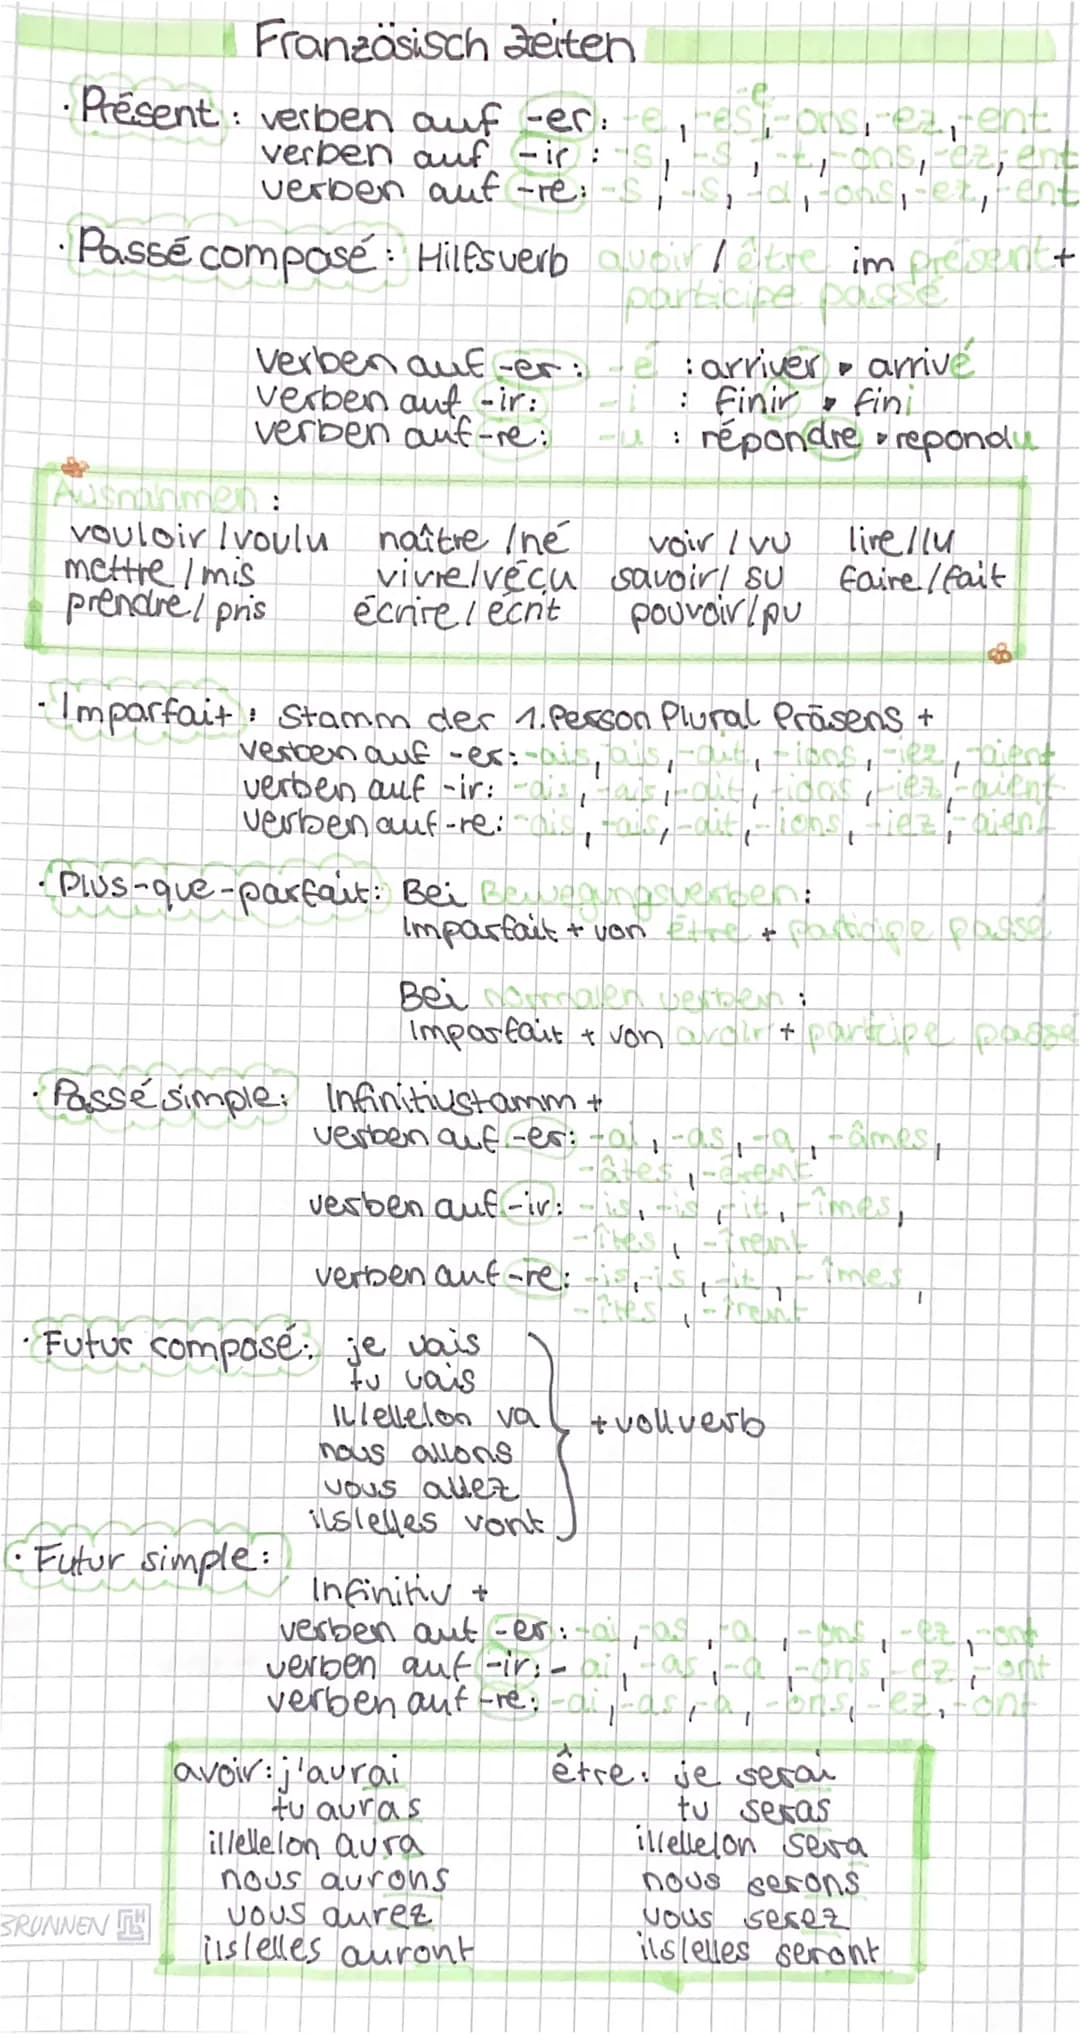 Französisch Zeiten
· Présent : verben auf -er: -e, -es, -e, -ons, -ez, -ent
verben auf -ir : -s, -s, -t, -ons, -ez, -ent
verben auf -re: -s, -s, -d, -ons, -ez, -ent
· Passé composé : Hilfsverb avoir / être im présent +
participe passé
verben auf -er : -é : arriver ▸ arrivé
verben auf -ir: -i : finir ▸ fini
verben auf -re: -u : répondre ▸ repondu
Ausnahmen :
vouloir / voulu naître / né voir / vu lire / lu
mettre / mis vivre / vécu savoir / su faire / fait
prendre / pris écrire / écrit pouvoir / pu
· Imparfait : Stamm der 1. Person Plural Präsens +
verben auf -er: -ais, ais, -ait, -ions, -iez, -aient
verben auf -ir: -ais, -ais, -ait, -ions, -iez, -aient
verben auf -re: -ais, -ais, -ait, -ions, -iez, -aient
· Plus-que-parfait: Bei Bewegungsverben:
Imparfait + von Être + participe passé
Bei normalen verben :
Imparfait + von avoir + participe passé
· Passé simple: Infinitivstamm +
verben auf -er: -ai, -as, -a, -âmes,
-âtes, -èrent
verben auf -ir: -is, -is, -it, -îmes,
-îtes, -irent
verben auf -re: -is, -is, -it, -îmes,
-îtes, -irent
· Futur composé: je vais
tu vais
il/elle/on va + vollverb
nous allons
vous allez
ils/elles vont
· Futur simple:
Infinitiv +
verben auf -er: -ai, -as, -a, -ons, -ez, -ont
verben auf -ir: -ai, -as, -a, -ons, -ez, -ont
verben auf -re: -ai, -as, -a, -ons, -ez, -ont
avoir: j'aurai être: je serai
tu auras tu seras
il/elle/on aura il/elle/on sera
nous aurons nous serons
vous aurez vous serez
ils/elles auront ils/elles seront
BRUNNEN